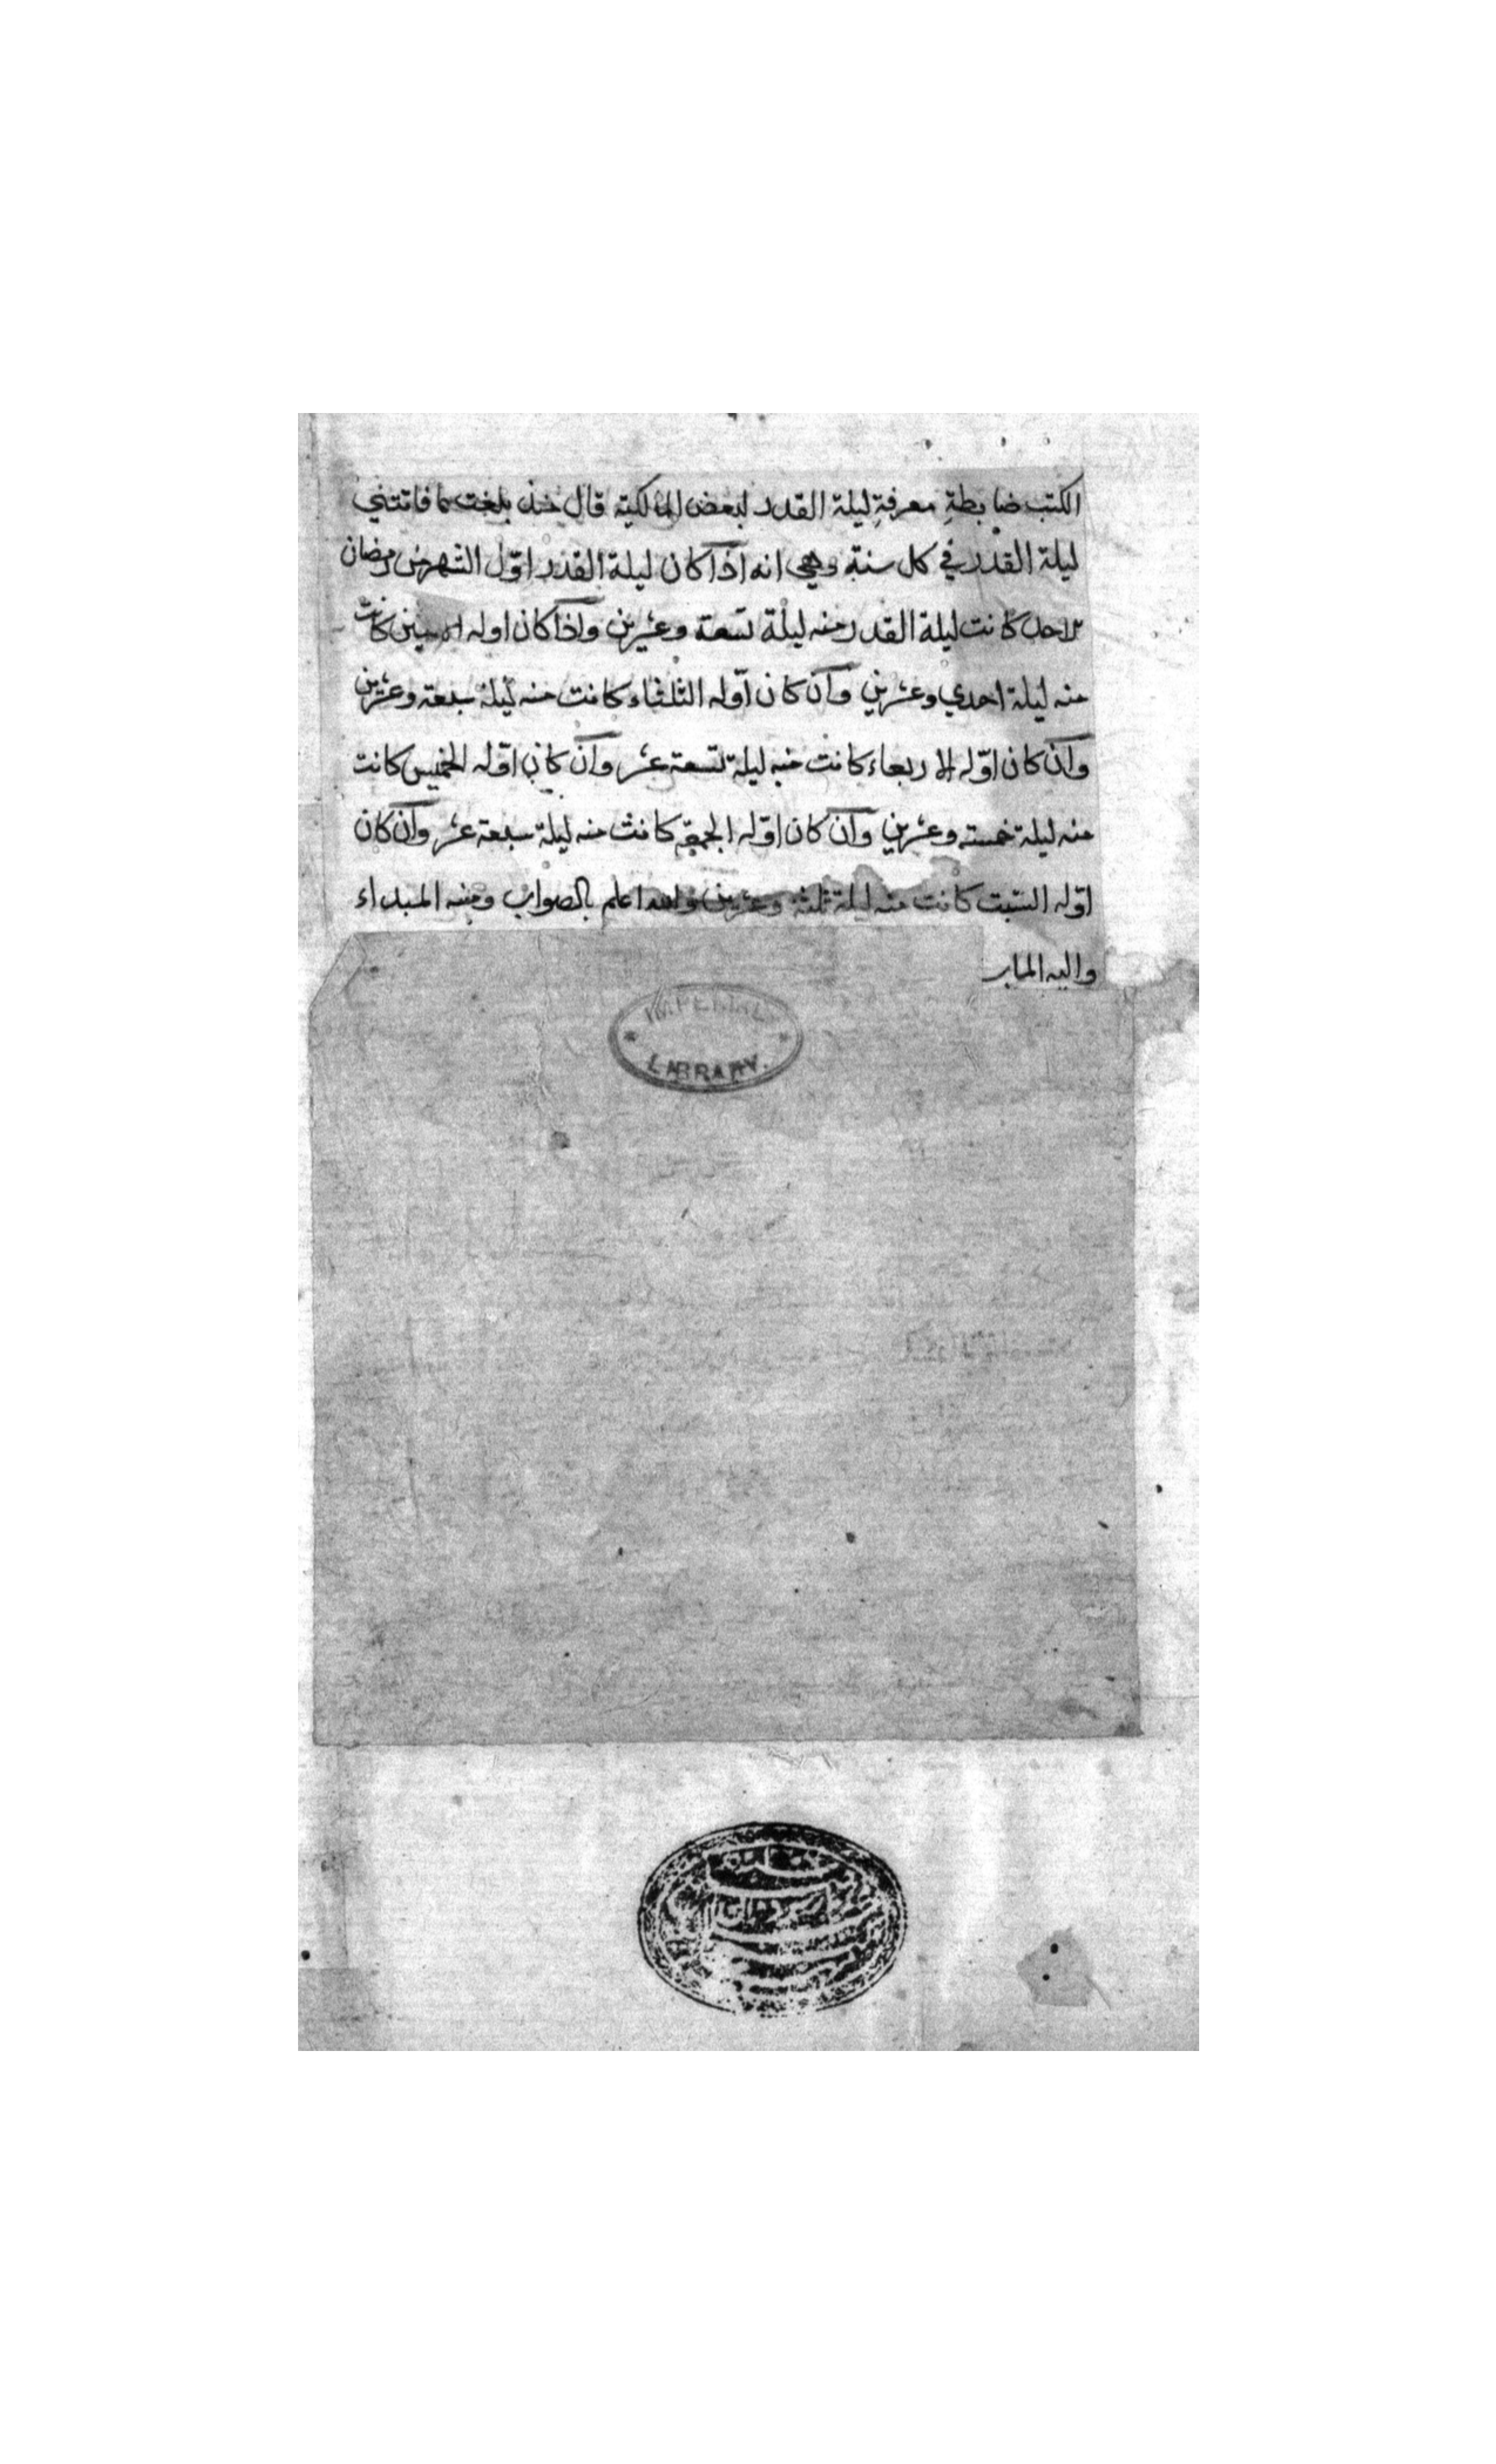 الكتب ضابطة معرفة ليلة القدر لبعض المالكية قال خذ بلغت ما فاتتني
ليلة القدر في كل سنة وهي انه اذا كان ليلة القدر اوّل الشهر من رمضان
الاحد كانت ليلة القدر منه ليلة تسعة وعشرين واذا كان اوله الاثنين كانت
منه ليلة احدي وعشرين وان كان اوّله الثلثاء كانت منه ليلة سبعة وعشرين
وان كان اوّله الاربعاء كانت منه ليلة تسعة عشر وان كان اوّله الخميس كانت
منه ليلة خمسة وعشرين وان كان اوّله الجمعة كانت منه ليلة سبعة عشر وان كان
اوّله السّبت كانت منه ليلة ثلثة وعشرين والله اعلم بالصواب ومنه المبداء
واليه الماب
IMPERIAL
LIBRARY.